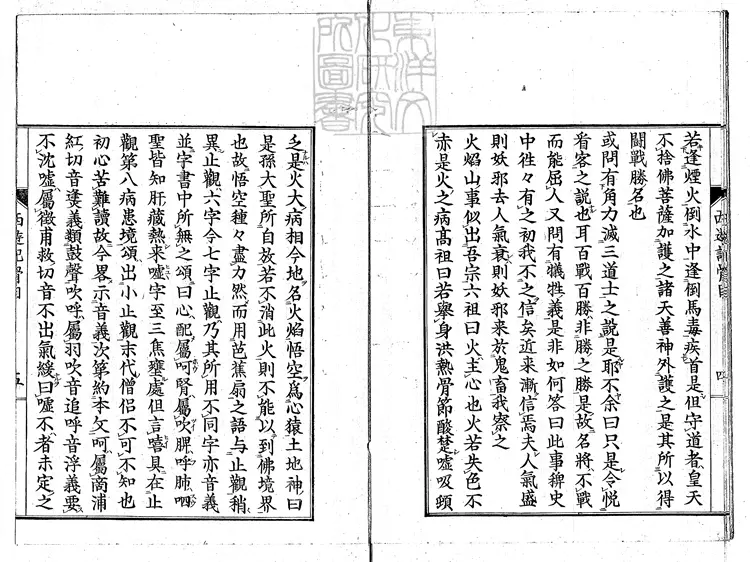 若逢煙火倒水中逢倒馬毒疾首是但守道者皇天
不捨佛菩薩加護之諸天善神外護之是其所以得
鬪戰勝名也
或問有角力滅三道士之說是耶不余曰只是令悅
看客之說也耳百戰百勝非勝之勝是故名將不戰
而能屈人又問有犧牲義是非如何答曰此事稗史
中徃々有之初我不之信矣近來漸信焉夫人氣盛
則妖邪去人氣衰則妖邪來於鬼畜我察之
火焰山事似出吾宗六祖曰火主心也火若失色不
赤是火之病高祖曰若舉身洪熱骨節酸楚噓吸頻
四
乏是火大病相今地名火焰悟空為心猿土地神曰
是孫大聖所自放若不消此火則不能以到佛境界
也故悟空種々盡力然而用芭蕉扇之語与止觀稍
異止觀六字今七字止觀乃其所用不同字亦音義
並字書中所無之頌曰心配屬呵腎屬吹脾呼肺呬
聖皆知肝藏熱来噓字至三焦壅處但言嘻具在止
觀第八病患境頌出小止觀末代僧侶不可不知也
初心苦難讀故今畧示音義次第約本文呵屬商浦
紅切音蓬義類鼓聲吹呼屬羽吹音追呼音浮義要
不沈噓屬徵甫救切音不出氣緩曰噓不者未定之
五